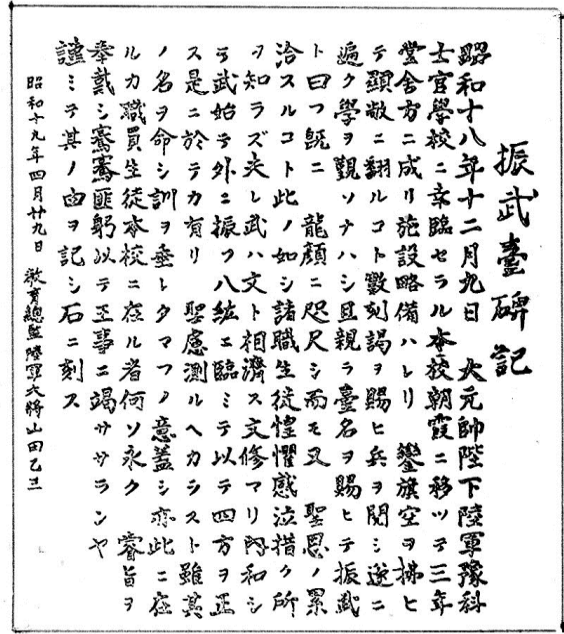 振武臺碑記
昭和十八年十二月九日　大元帥陛下陸軍豫科
士官學校ニ幸臨セラル本校朝霞ニ移ツテ三年
堂舍方ニ成リ施設略備ハレリ　鑾旗空ヲ拂ヒ
テ顯敞ニ翻ルコト數刻謁ヲ賜ヒ兵ヲ閲シ遂ニ
遍ク學ヲ觀ソナハシ且親ラ臺名ヲ賜ヒテ振武
ト曰フ既ニ　龍顏ニ咫尺シ而モ又　聖恩ノ累
洽スルコト此ノ如シ諸職生徒惶懼感泣措ク所
ヲ知ラズ夫レ武ハ文ト相濟ス文修マリ内和シ
テ武始テ外ニ振フ八紘ニ臨ミテ以テ四方ヲ正
ス是ニ於テカ有リ　聖慮測ルヘカラスト雖其
ノ名ヲ命シ訓ヲ垂レタマフノ意蓋シ亦此ニ在
ルカ職員生徒本校ニ在ル者何ソ永ク　睿旨ヲ
奉戴シ蹇蹇匪躬以テ王事ニ竭ササランヤ
謹ミテ其ノ由ヲ記シ石ニ刻ス
昭和十九年四月廿九日　教育總監陸軍大將山田乙三